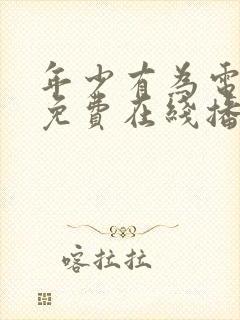 年少有為電
免費在綫播
喀拉拉